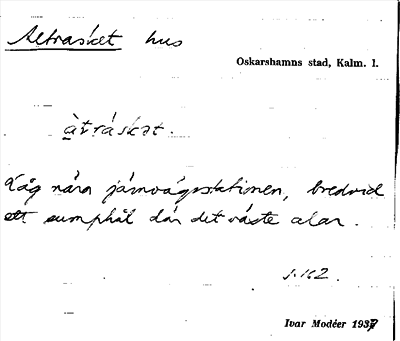 Alträsket hus
Oskarshamns stad, Kalm. l.
àtráskat.
Låg nära järnvägsstationen, bredvid
ett sumphål där det växte alar.
s. 162.
Ivar Modéer 1937